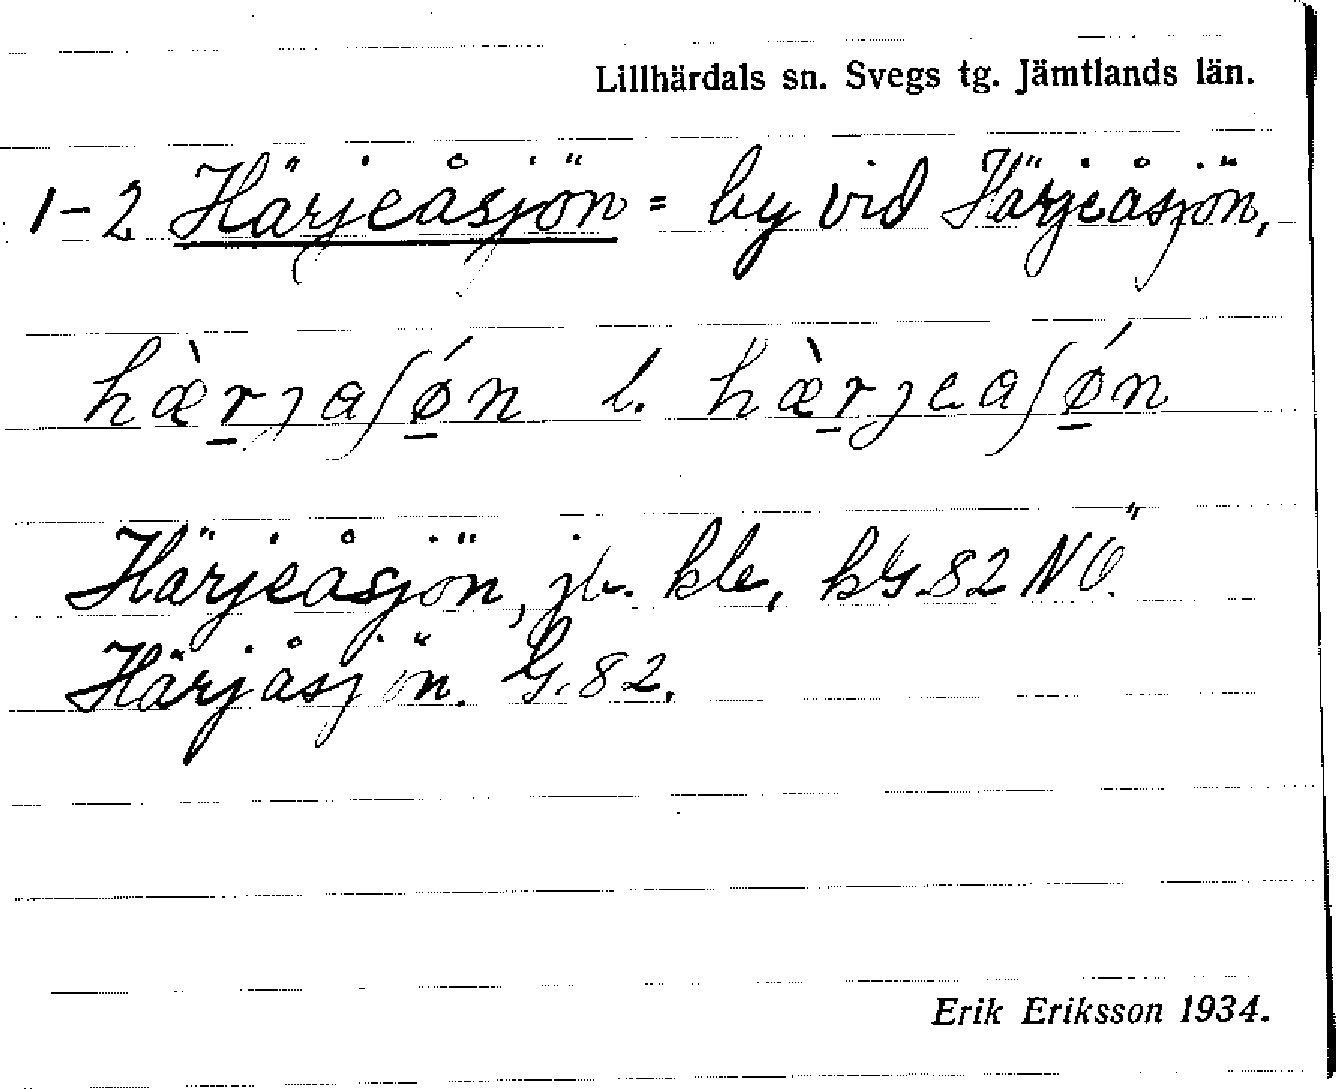 Lillhärdals sn. Svegs tg. Jämtlands län.
1-2 Härjeåsjön = by vid Härjeåsjön,
hæ̀r̲jaʃǿ̲n l. hæ̀r̲jeaʃǿ̲n
Härjeåsjön, jb. kbl, kG.82 NÖ.
Härjåsjön. G.82.
Erik Eriksson 1934.